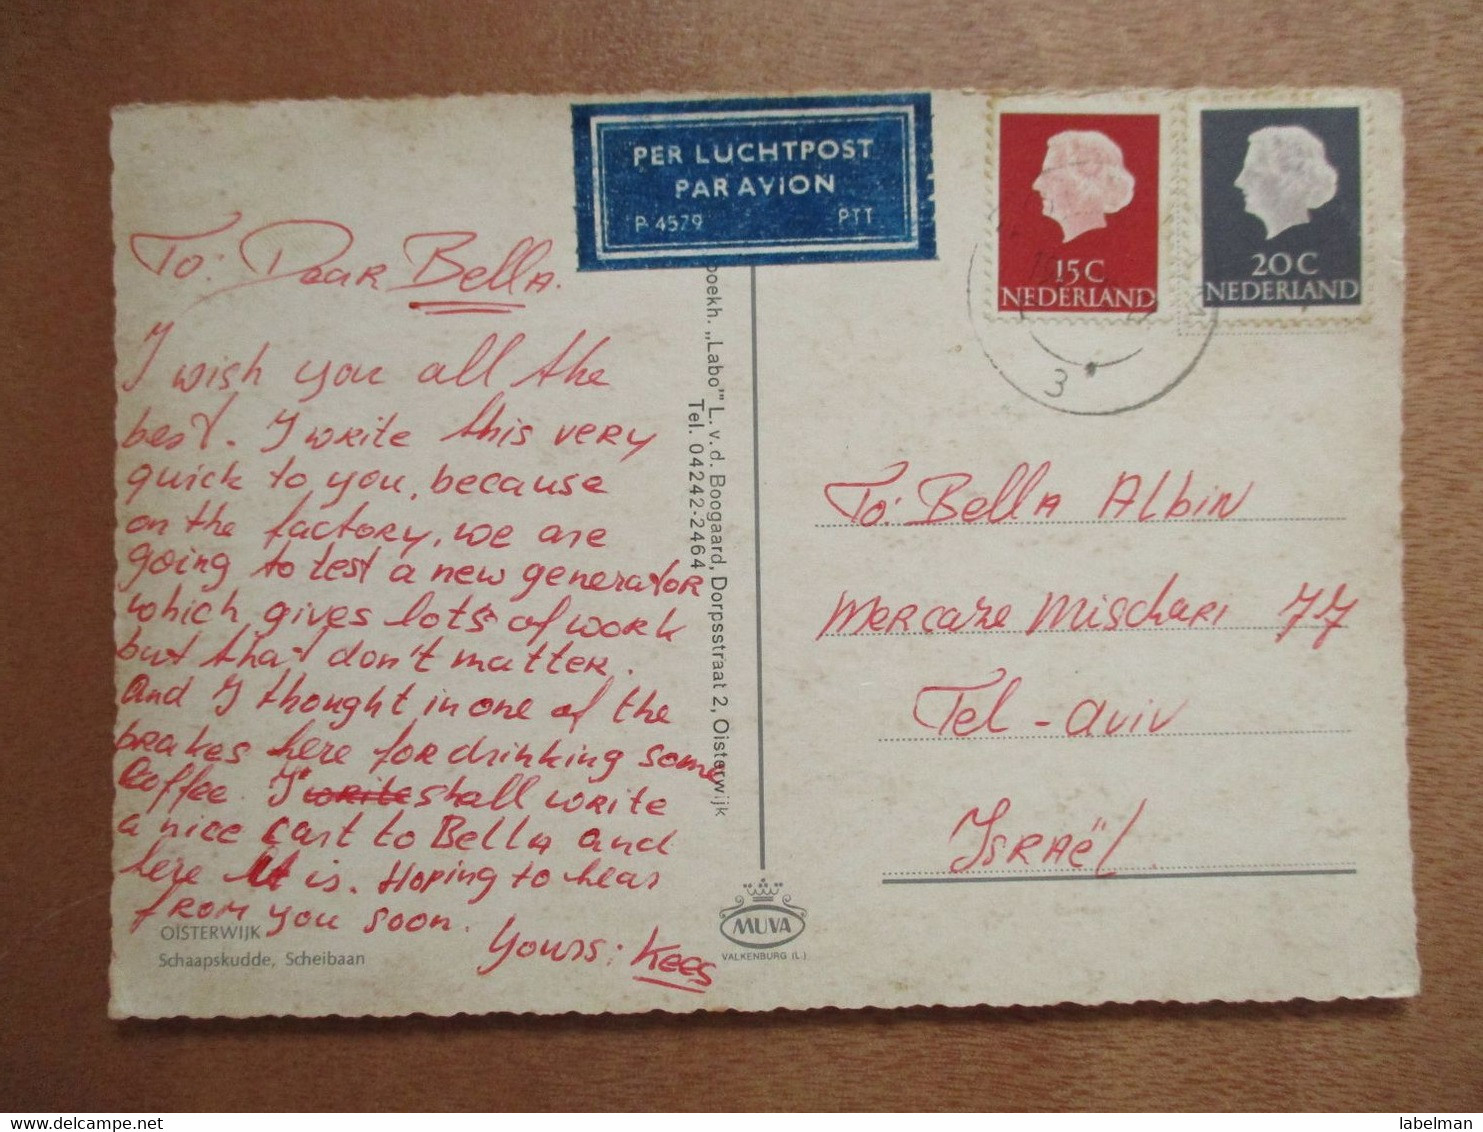 PER LUCHTPOST
PAR AVION
P 4579 PTT
15 C
NEDERLAND
20 C
NEDERLAND
3
To: Dear Bella.
I wish you all the
best. I write this very
quick to you, because
on the factory, we are
going to test a new generator
which gives lots of work
but that don't matter.
and I thought in one of the
brakes here for drinking some
Coffee. I write shall write
a nice cart to Bella and
here it is. Hoping to hear
from you soon.
Yours: Kees
OISTERWIJK
Schaapskudde, Scheibaan
boekh. „Labo'" L. v. d. Boogaard, Dorpsstraat 2, Oisterwijk
Tel. 04242-2464
MUVA
VALKENBURG (L.)
To: Bella Albin
Mercaze Mischari 77
Tel-aviv
Israël.
labelman
www.delcampe.net